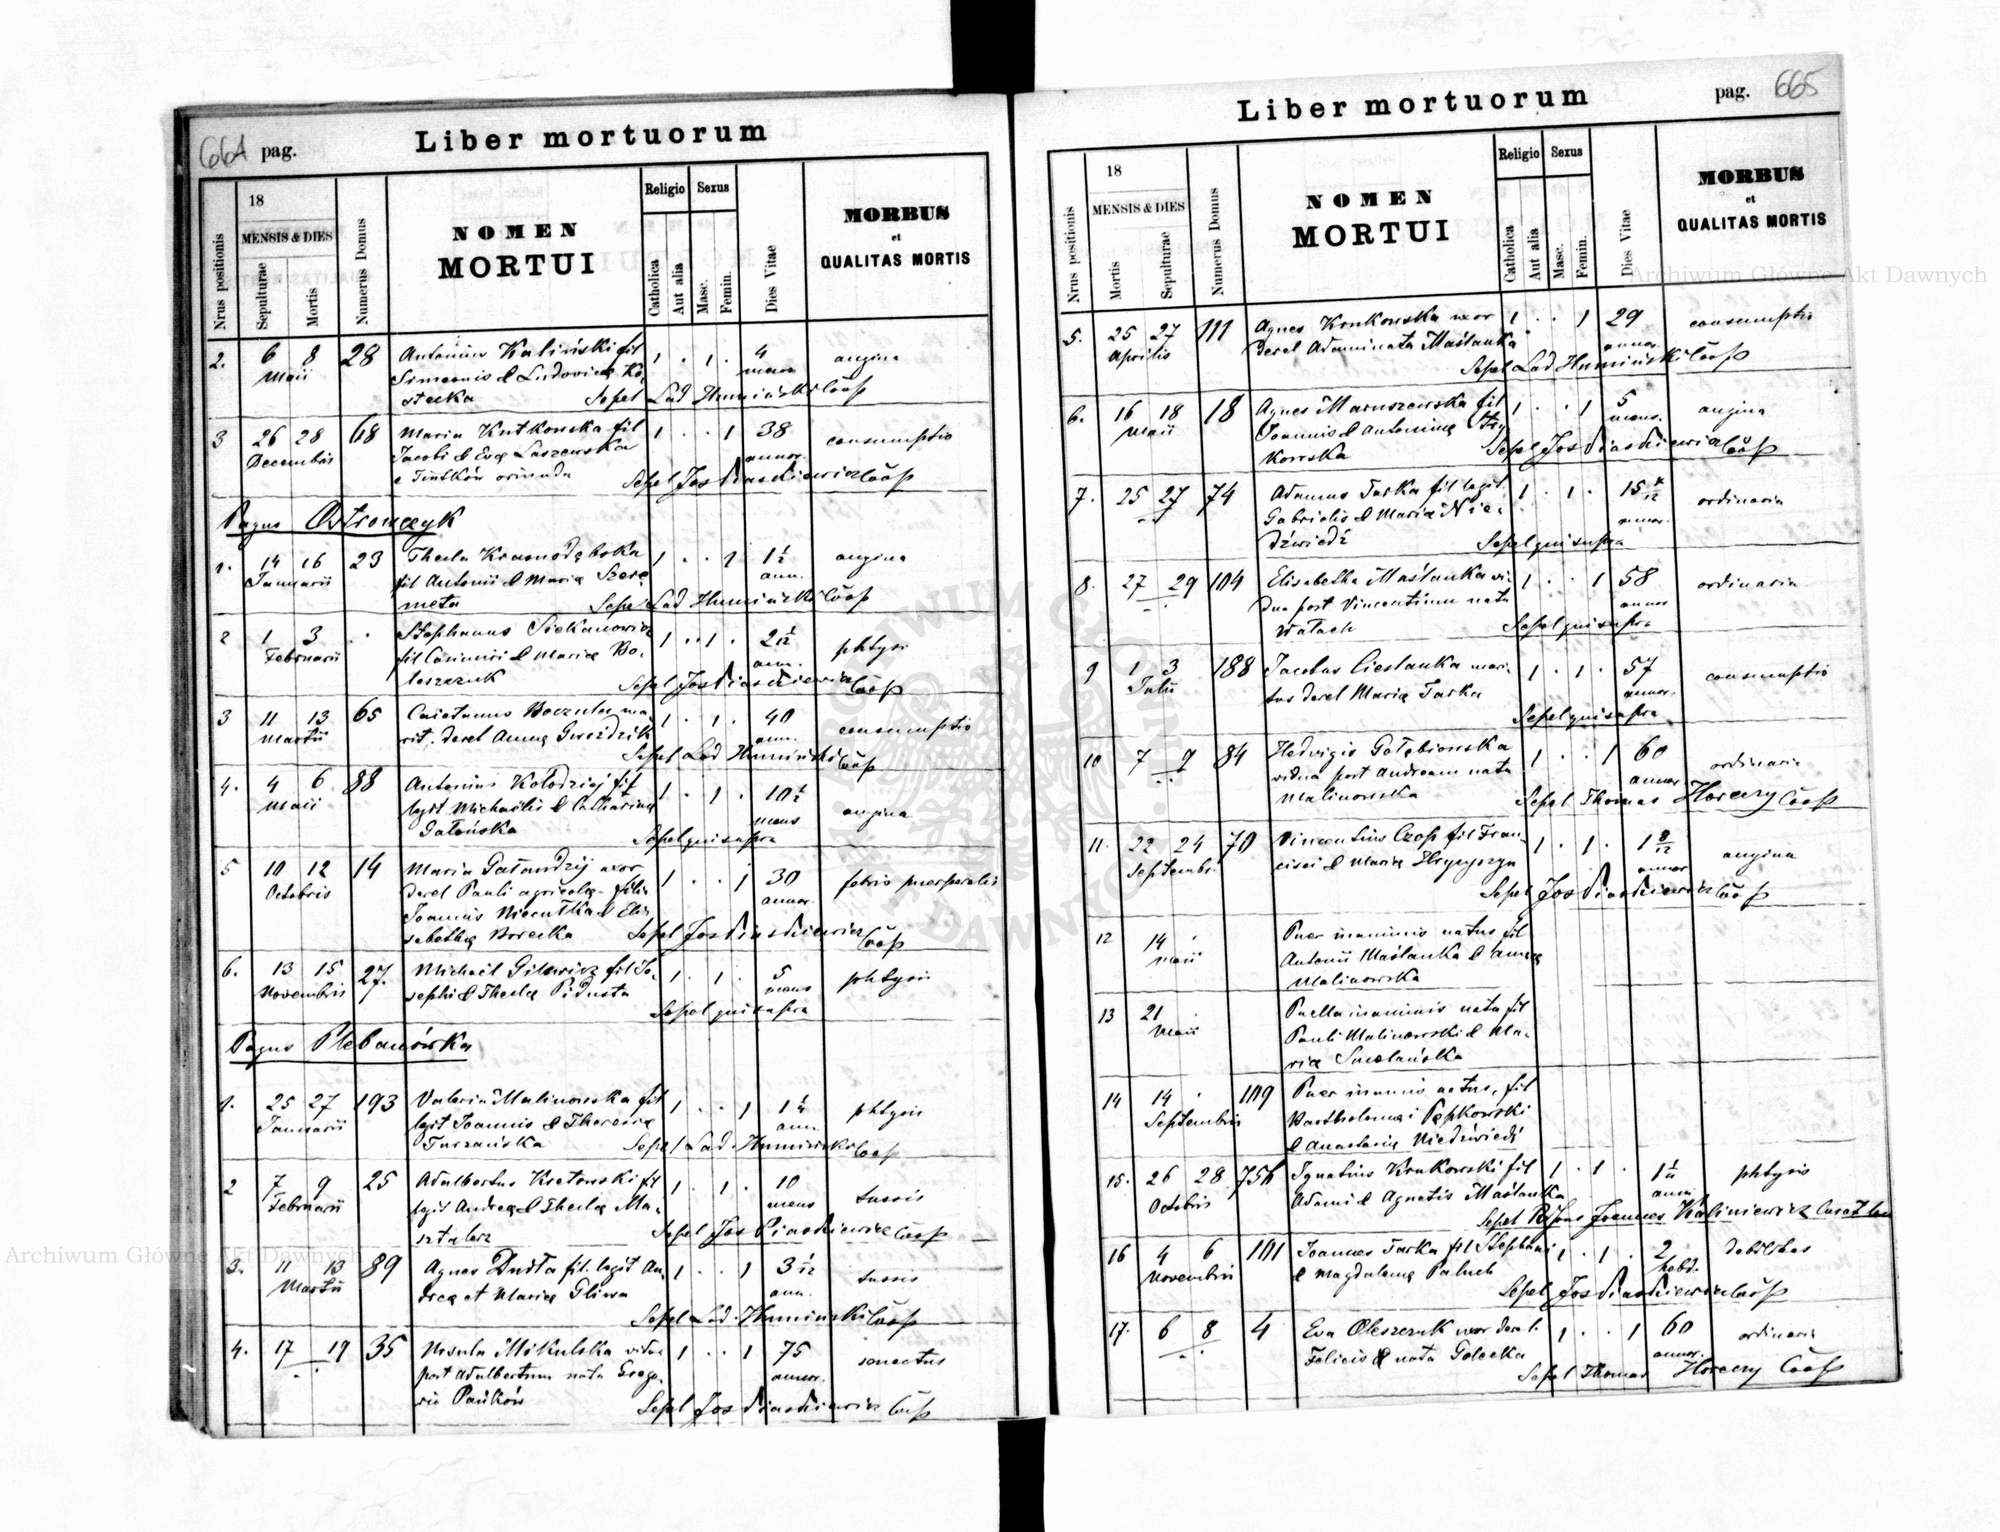 664 pag. Liber mortuorum
Nrus positionis
18
MENSIS & DIES
Sepulturae
Mortis
Numerus Domus
NOMEN
MORTUI
Religio
Catholica
Aut alia
Sexus
Masc.
Femin.
Dies Vitae
MORBUS
et
QUALITAS MORTIS
2. 6 8 28 Antonius Kaliński fil 1 . 1 . 4 angina
Maii Simeonis & Ludovica Ko
stecka Sepel Lad Humiński Coop
3 26 28 68 Maria Kutkowska fil 1 . . 1 38 consumptio
Decembris Jacobi & Eva Laszewska annor.
e oriunda Sepel Jos Piaskiewicz Coop
Pagus Ostrowczyk
1. 14 16 23 Thecla Krasnodębska 1 . . 1 1½ angina
Januarii fil Antonii & Maria Szere ann.
meta Sepel Lad Humiński Coop
2 1 3 . Stephanus Siekanowicz 1 . . 1 . 2 1/12 phtysis
Februarii fil Casimiri & Maria Bo- ann.
leszczuk Sepel Jos Piaskiewicz Coop
3 11 13 65 Caietanus Boczula ma 1 . 1 . 40 consumptio
Martii rit. derel Anna Gwoździk ann.
Sepel Lad Humiński Coop
4. 4 6 88 Antonius Kołodziej fil 1 . 1 . 10½ angina
Maii legit Michaëlis & Catharina mens
Sepel qui supra
5 10 12 14 Maria Gałandzij uxor 1 . . 1 30 febris puerperalis
Octobris derel Pauli agricola - filia annor.
Joannis & Eli
sabetha Borecka Sepel Jos Piaskiewicz Coop
6. 13 15 27. Michaël Gilewicz fil Jo- 1 . 1 . 5 phtysis
Novembris sephi & Thecla Pidusta mens
Sepel qui supra
Pagus Plebanówka
1. 25 27 193 Valeria Malinowska fil 1 . . 1 1¼ phtysis
Januarii legit Joannis & Theresia ann.
Turzańska Sepel Lad. Humiński Coop
2 7 9 25 Adalbertus Kretowski fil 1 . 1 . 10 tussis
Februarii legit Andrea & Thecla Ma- mens
sztalerz Sepel Jos Piaskiewicz Coop
3. 11 13 89 Agnes Dusta fil. legit An 1 . . 1 3 1/12 tussis
Martii drea et Maria Gliwa ann.
Sepel Lad. Humiński Coop
4. 17 19 35 Ursula Mikulska vidua 1 . . 1 75 senectus
post Adalbertum nata Grego- annor.
rio Pańków Sepel Jos Piaskiewicz Coop
Liber mortuorum pag. 665
Nrus positionis
18
MENSIS & DIES
Mortis
Sepulturae
Numerus Domus
NOMEN
MORTUI
Religio
Catholica
Aut alia
Sexus
Masc.
Femin.
Dies Vitae
MORBUS
et
QUALITAS MORTIS
5. 25 27 111 Agnes Krukowska uxor 1 . . 1 29 consumptio
Aprilis derel Adami nata Maślanka annor.
Sepel Lad Humiński Coop
6. 16 18 18 Agnes Maruszewska fil 1 . . 1 5 angina
Maii Joannis & Antonina mens.
kowska Sepel Jos Piaskiewicz Coop
7. 25 27 74 Adamus Tarka fil legit. 1 . 1 . 15 ordinaria
Gabrielis & Maria Nie- annor.
dźwiedź Sepel qui supra
8. 27 29 104 Elisabetha Maślanka vi- 1 . . 1 58 ordinaria
dua post Vincentium nata annor
Wałach Sepel qui supra
9 1 3 188 Jacobus Cieslanka mari- 1 . 1 . 57 consumptio
Julii tus derel Maria Tarka annor.
Sepel qui supra
10 7 9 84 Hedvigis Gołębiowska 1 . . 1 60 ordinaria
vidua post Andream nata annor
Malinowska Sepel Thomas Horeczy Coop
11. 22 24 70 Vincentius Czop fil Fran- 1 . 1 . 1 8/12 angina
Septembr. cisci & Maria Hryngoryn annor
Sepel Jos Piaskiewicz Coop
12 14 . Puer inanimis natus fil
Maii Antonii Maślanka & Anna
Malinowska
13 21 . Puella inanimis nata fil
Maii Pauli Malinowski & Ma-
ria Smolańska
14 14 . 109 Puer inanimis natus, fil
Septembris Bartholomei Pępkowski
& Anastasia Niedźwiedź
15. 26 28 756 Ignatius Krukowski fil 1 . 1 . phtysis
Octobris Adami & Agnetis Maślanka ann.
Sepel Joannes Kaliniewicz
16 4 6 101 Joannes Tarka fil Stephani 1 . 1 . 2 debilitas
Novembris & Magdalena Paluch hebd.
Sepel Jos Piaskiewicz Coop
17. 6 8 4 Eva Oleszczuk uxor derel. 1 . . 1 60 ordinaria
Felicis & nata Golecka annor.
Sepel Thomas Horeczy Coop
Archiwum Główne Akt Dawnych
Archiwum Główne Akt Dawnych
ARCHIWUM GŁÓWNE AKT DAWNYCH